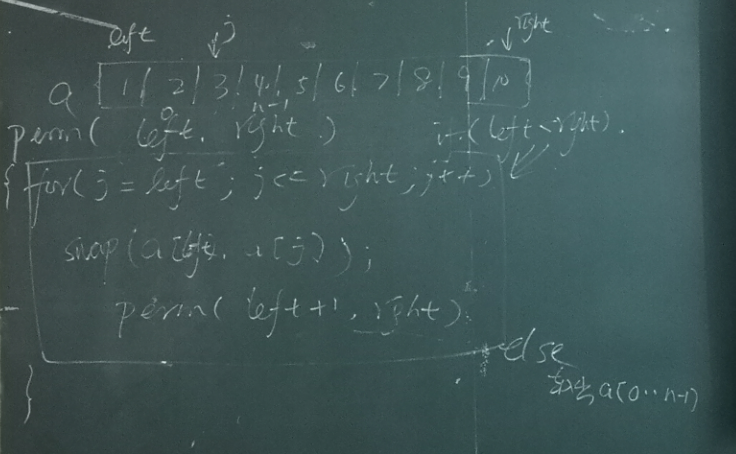 left j right
a 1 | 2 | 3 | 4 | 5 | 6 | 7 | 8 | 9 | 10
0 n-1
perm( left, right ) if(left<right).
{ for(j=left; j<=right; j++)
swap(a[left, a[j]);
perm( left+1, right)
else
a[0..n-1]
}